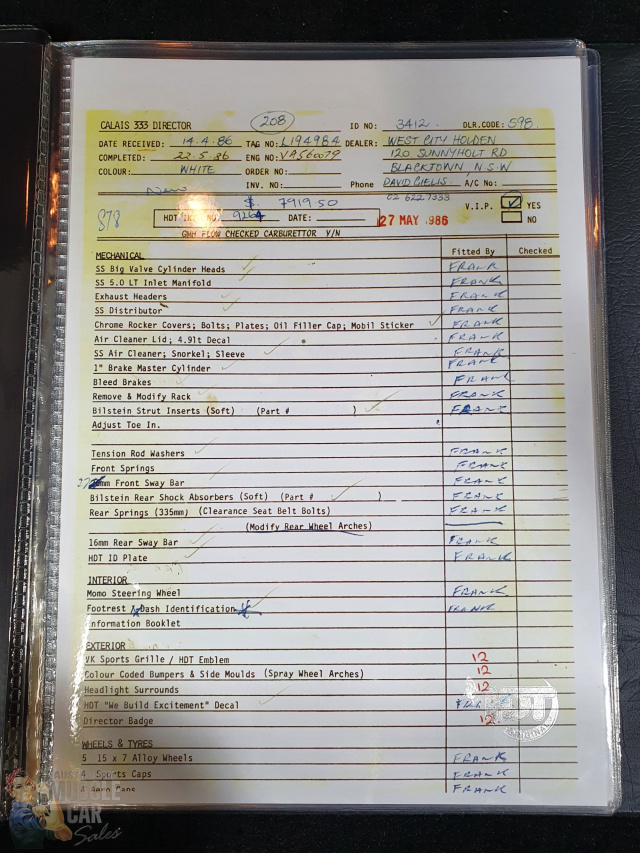 208
CALAIS 333 DIRECTOR ID NO: 3412. DLR.CODE: 598.
DATE RECEIVED: 14.4.86 TAG NO: L194984 DEALER: WEST CITY HOLDEN
COMPLETED: 22.5.86 ENG NO: VA56079 120 SUNNYHOLT RD
COLOUR: WHITE ORDER NO: BLACKTOWN, N.S.W
INV. NO: Phone DAVID GIELIS A/C No:
New 02 622 7333
$ 7919.50 V.I.P. YES
878 HDT INV. NO: 9264 DATE: 27 MAY 1986 NO
GMH FLOW CHECKED CARBURETTOR Y/N
MECHANICAL Fitted By Checked
SS Big Valve Cylinder Heads FRANK
SS 5.0 LT Inlet Manifold FRANK
Exhaust Headers FRANK
SS Distributor FRANK
Chrome Rocker Covers; Bolts; Plates; Oil Filler Cap; Mobil Sticker FRANK
Air Cleaner Lid; 4.9lt Decal FRANK
SS Air Cleaner; Snorkel; Sleeve FRANK
1" Brake Master Cylinder FRANK
Bleed Brakes FRANK
Remove & Modify Rack FRANK
Bilstein Strut Inserts (Soft) (Part # ) FRANK
Adjust Toe In.
Tension Rod Washers FRANK
Front Springs FRANK
mm Front Sway Bar FRANK
Bilstein Rear Shock Absorbers (Soft) (Part # ) FRANK
Rear Springs (335mm) (Clearance Seat Belt Bolts) FRANK
(Modify Rear Wheel Arches)
16mm Rear Sway Bar FRANK
HDT ID Plate FRANK
INTERIOR
Momo Steering Wheel FRANK
Footrest Dash Identification FRANK
Information Booklet
EXTERIOR
VK Sports Grille / HDT Emblem 12
Colour Coded Bumpers & Side Moulds (Spray Wheel Arches) 12
Headlight Surrounds 12
HDT "We Build Excitement" Decal
Director Badge 12
WHEELS & TYRES
5 15 x 7 Alloy Wheels FRANK
4 Sports Caps FRANK
4 Aero Caps FRANK
MUSCLE
CAR
Sales